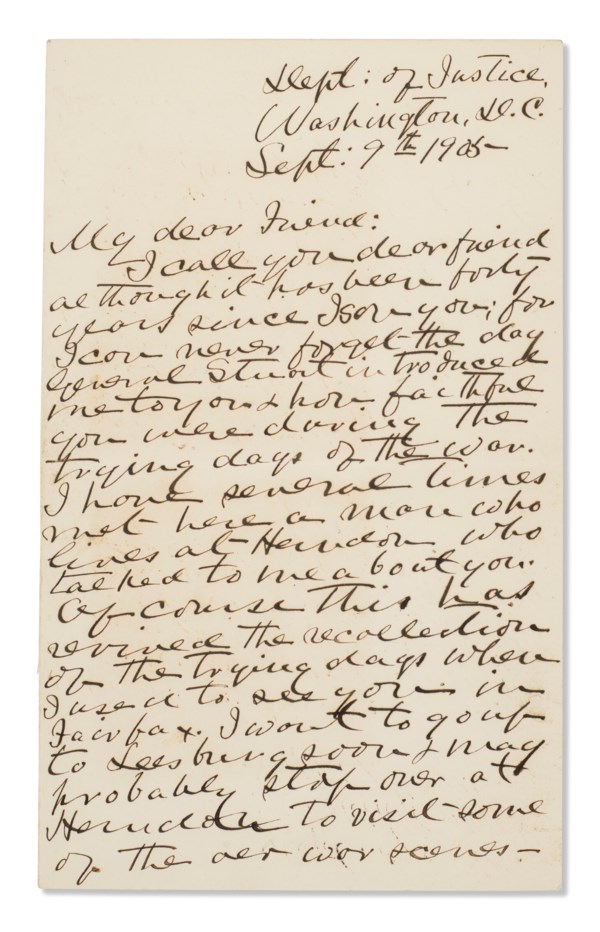 Dept: of Justice,
Washington, D.C.
Sept: 9th 1905
My dear Friend:
I call you dear friend
although it has been forty
years since I saw you; for
I can never forget the day
General Stuart introduced
me to you & how faithful
you were during the
trying days of the war.
I have several times
met here a man who
lives at Herndon who
talked to me about you.
Of course this has
revived the recollection
of the trying days when
I used to see you in
Fairfax. I want to go up
to Leesburg soon & may
probably stop over at
Herndon to visit some
of the war scenes -